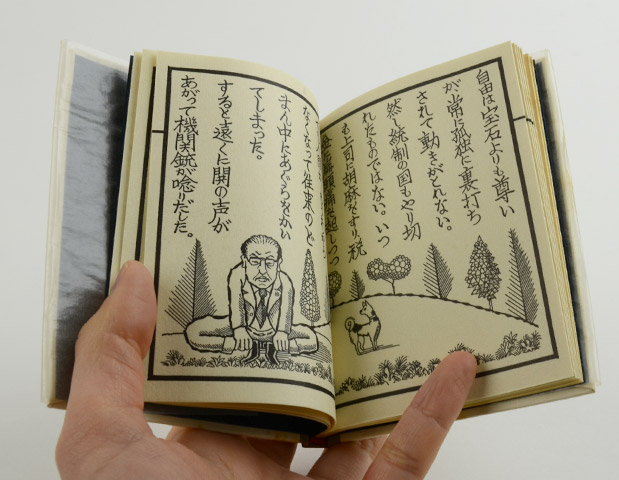 自由は宝石よりも尊い
が常に孤独に裏打ち
されて動きがとれない。
然し統制の国もやり切
れたものではない。いつ
も上司に胡麻をすり税
なくなって往来のど
まん中にあぐらをかい
てしまった。
すると遠くに閧の声が
あがって機関銃が唸りだした。